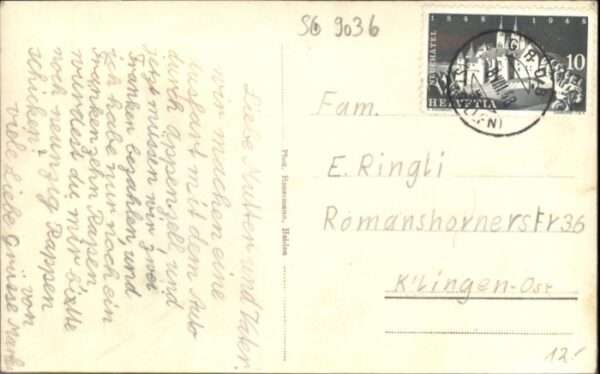 SG 9036
1848 1948
NEUCHATEL
10
HELVETIA
Fam.
E. Ringli
Romanshornerstr 36
K'lingen-Ost
12.-
Phot. Haussmann, Heiden
Liebe Mutter und Vater.
wir machen eine
Ausfart mit dem Auto
durch Appenzell, und
jetzt müssen wir zwei
Franken bezahlen, und
ich habe nur noch ein
Franken zehn Rapen
würdest du mir bitte
noch neunzig Rappen
schicken.
viele Liebe Grüsse
von